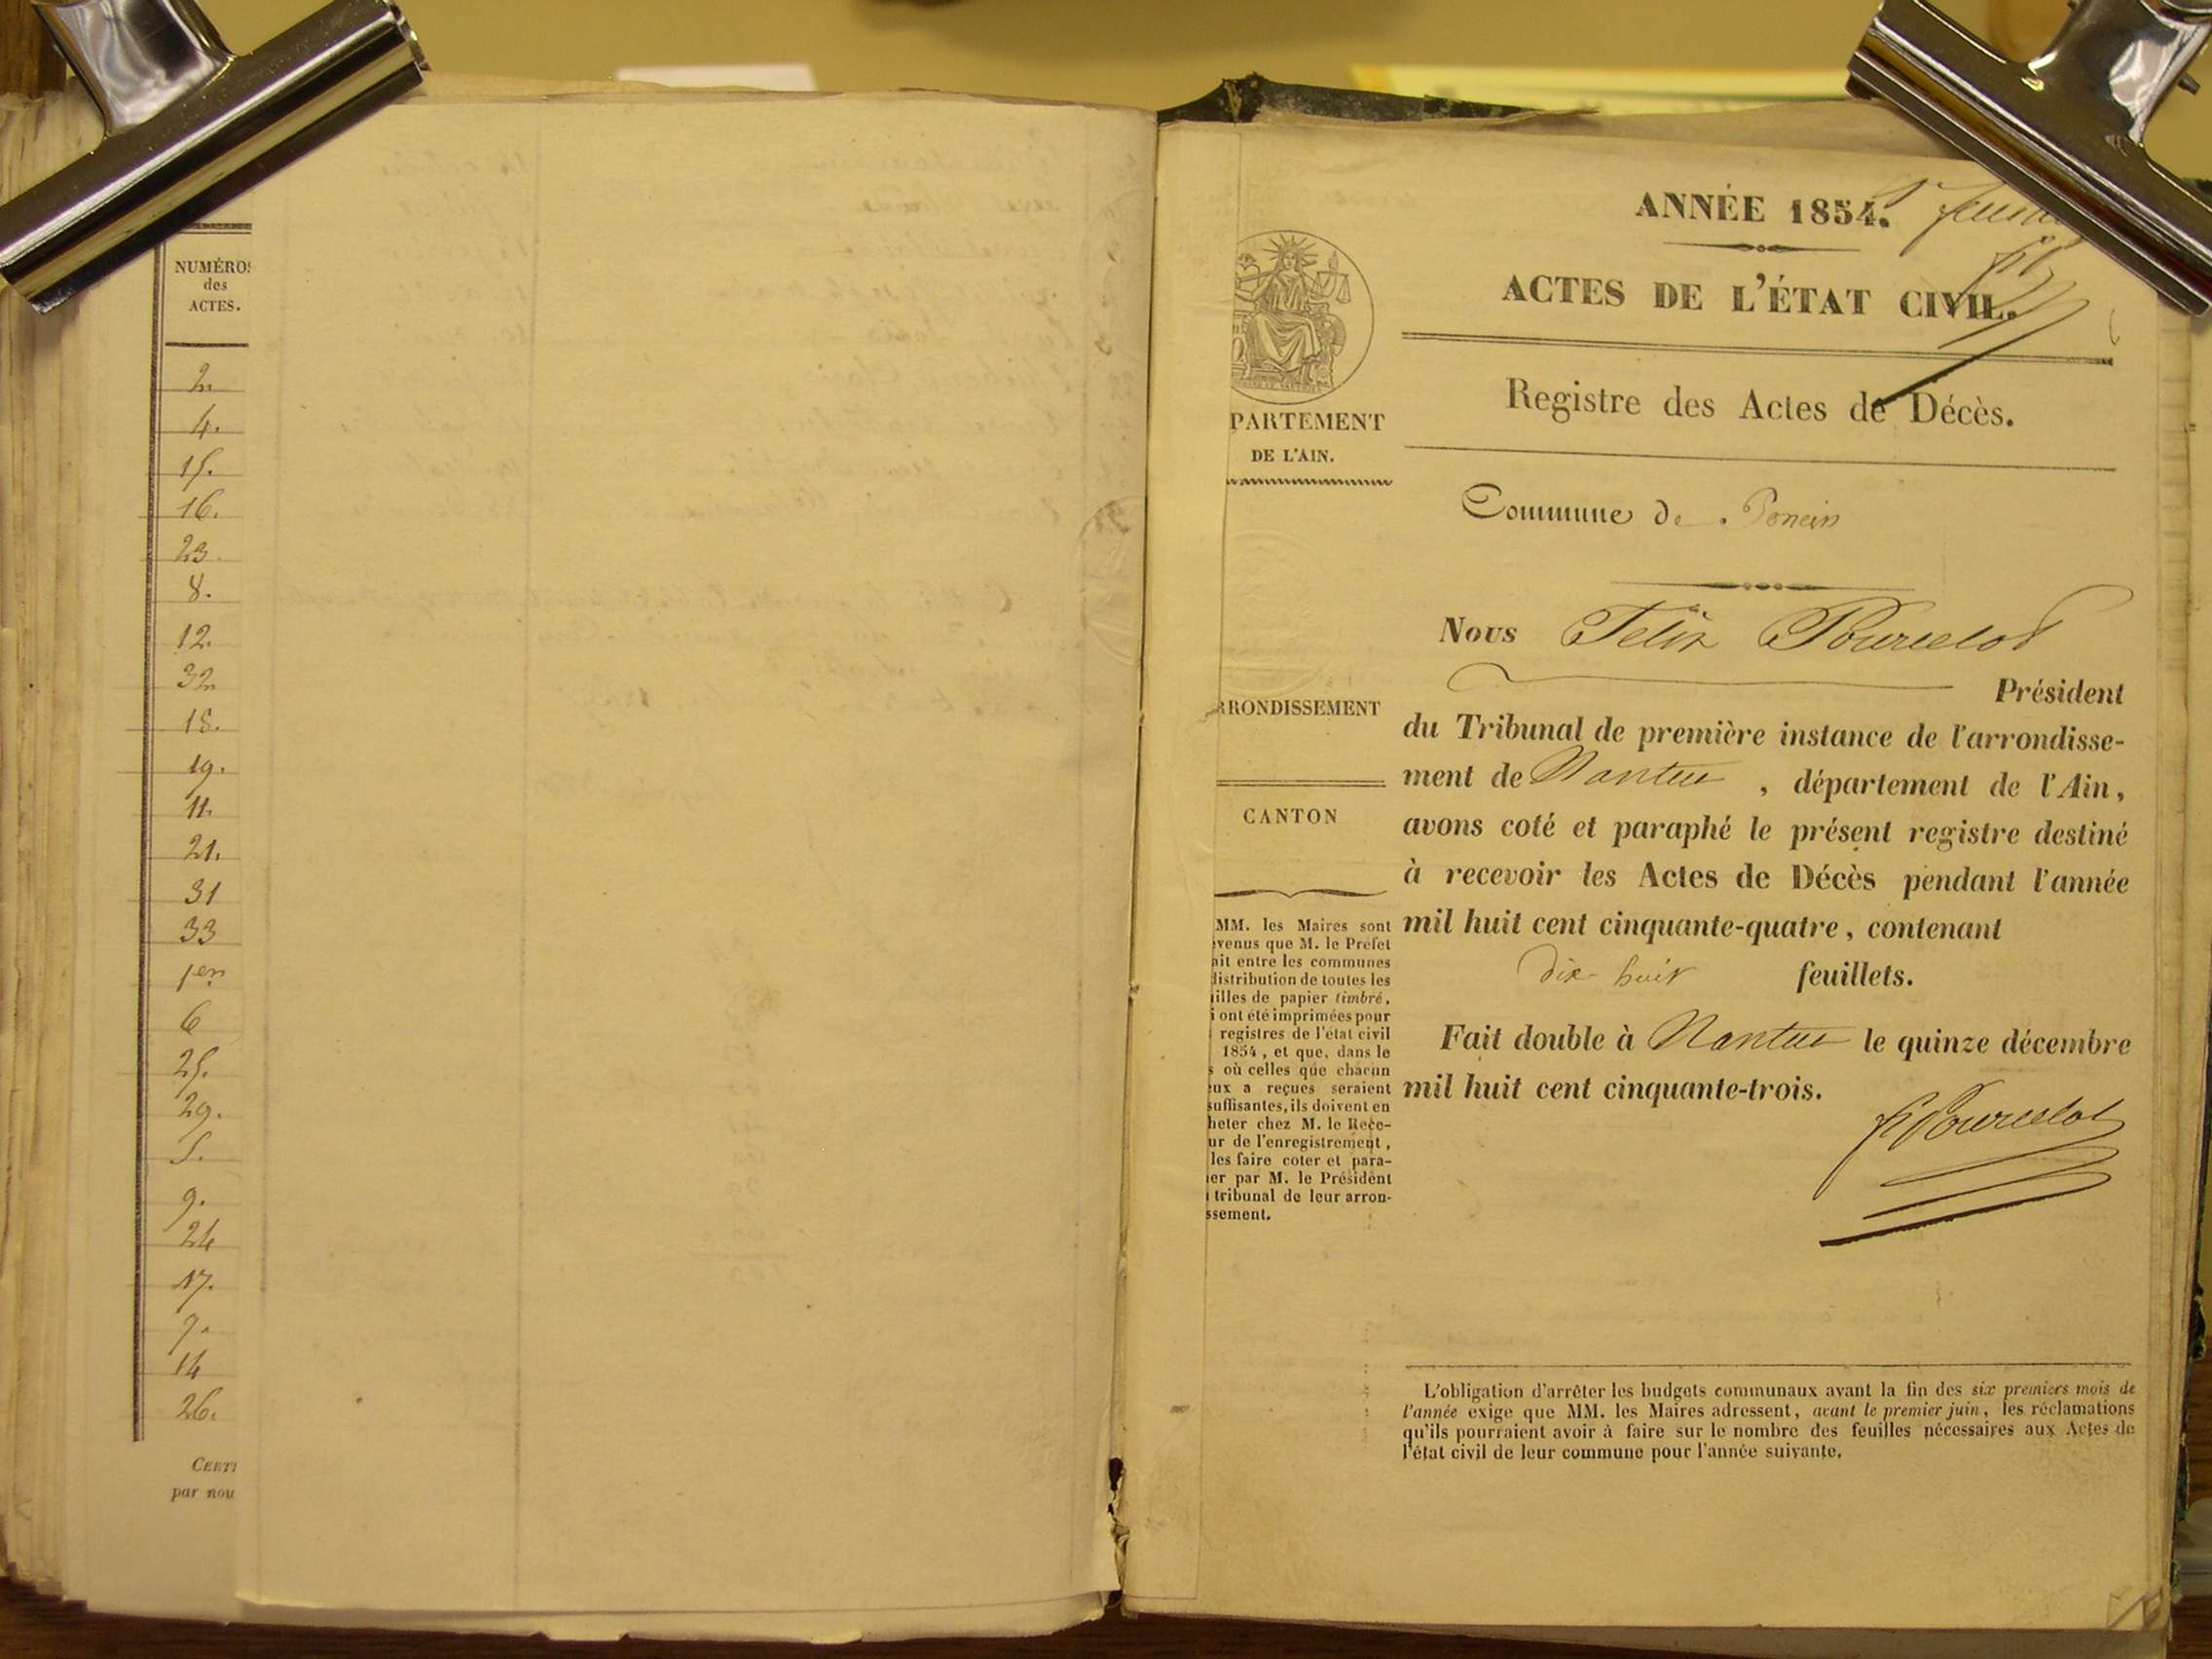 NUMÉROS
des
ACTES.
2
4.
15.
16.
23.
8.
12.
32
18.
19.
11.
21.
31
33
1er
6
25.
29.
5.
9.
24
17.
7.
14
26.
CERTI
par nou
ANNÉE 1854.
ACTES DE L'ÉTAT CIVIL.
Registre des Actes de Décès.
PARTEMENT
DE L'AIN.
Commune de Poncin
Nous Félix Pourcelot
Président
RRONDISSEMENT
du Tribunal de première instance de l'arrondisse-
ment de Nantua, département de l'Ain,
CANTON
avons coté et paraphé le présent registre destiné
à recevoir les Actes de Décès pendant l'année
mil huit cent cinquante-quatre, contenant
dix huit feuillets.
Fait double à Nantua le quinze décembre
mil huit cent cinquante-trois.
F Pourcelot
MM. les Maires sont
venus que M. le Préfet
ait entre les communes
distribution de toutes les
illes de papier timbré,
i ont été imprimées pour
registres de l'état civil
1854, et que, dans le
s où celles que chacun
eux a reçues seraient
suffisantes, ils doivent en
heter chez M. le Rece-
ur de l'enregistrement,
les faire coter et para-
er par M. le Président
tribunal de leur arron-
ssement.
L'obligation d'arrêter les budgets communaux avant la fin des six premiers mois de
l'année exige que MM. les Maires adressent, avant le premier juin, les réclamations
qu'ils pourraient avoir à faire sur le nombre des feuilles nécessaires aux Actes de
l'état civil de leur commune pour l'année suivante.